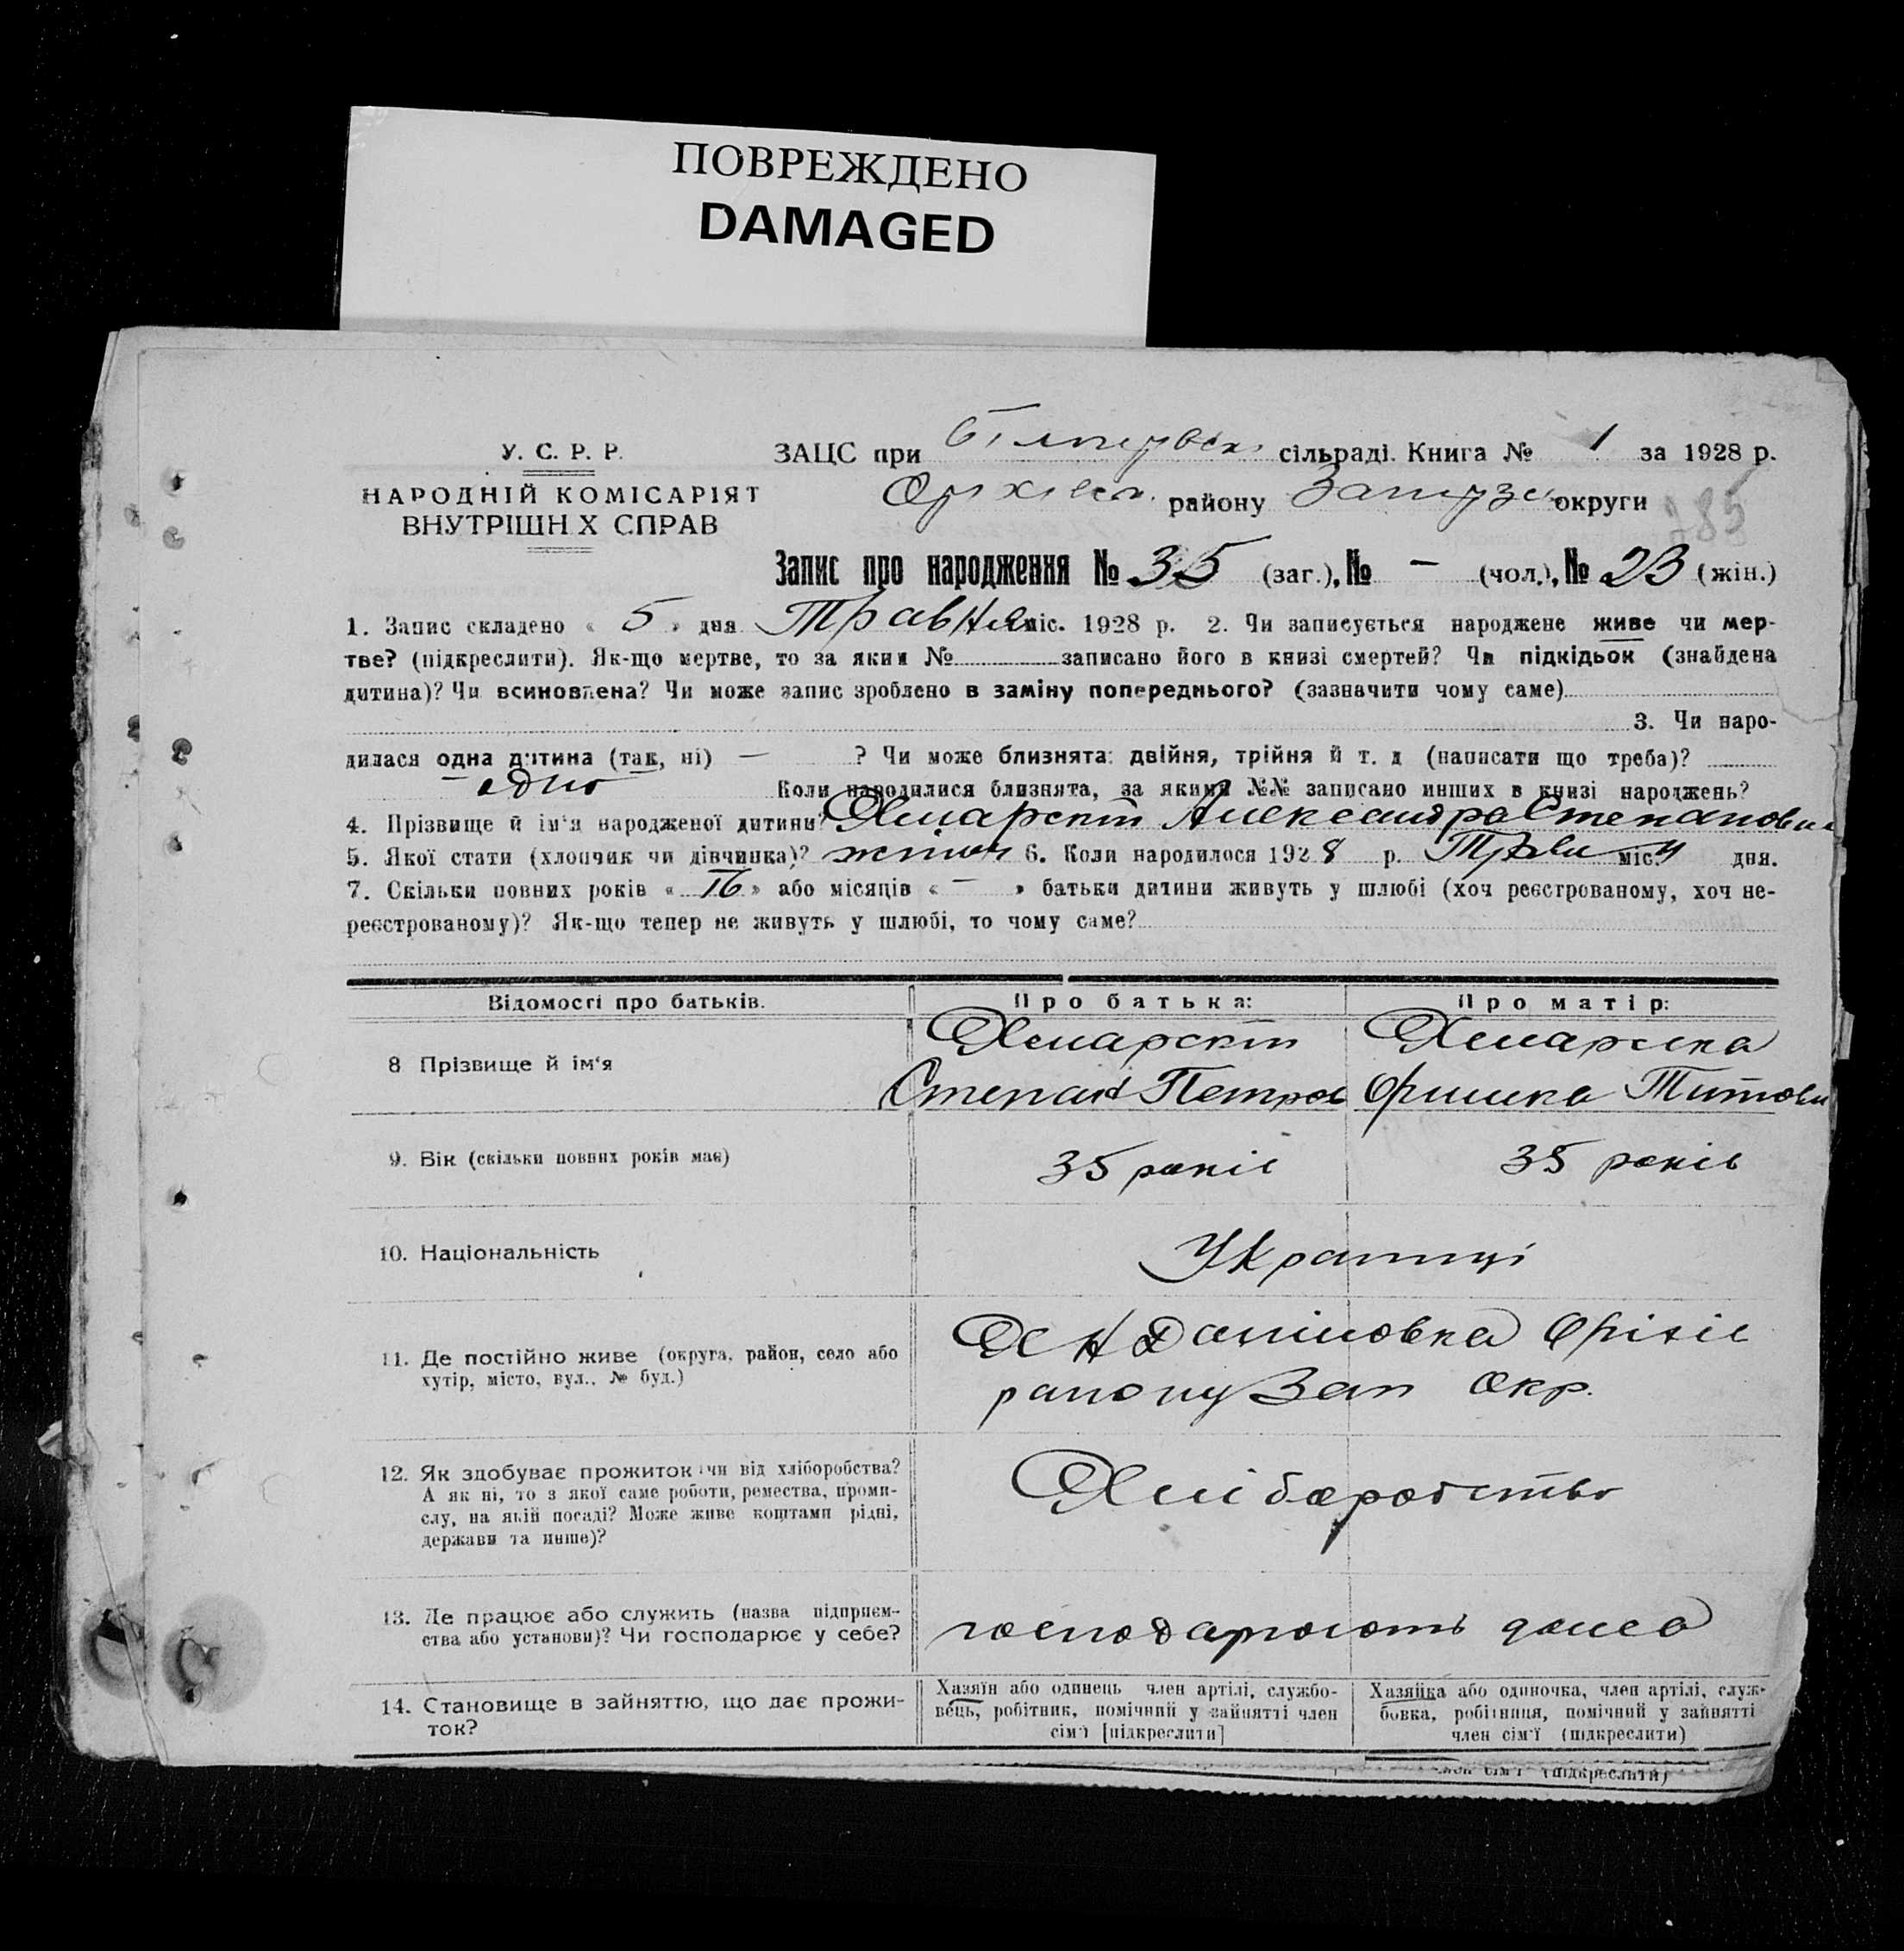 ПОВРЕЖДЕНО
DAMAGED
У. С. Р. Р.
НАРОДНІЙ КОМІСАРІЯТ
ВНУТРІШН Х СПРАВ
ЗАЦС при сільраді. Книга № 1 за 1928 р.
району округи
785
Запис про народження № 35 (заг.), № – (чол.), № 23 (жін.)
1. Запис складено « 5 » дня Травня міс. 1928 р. 2. Чи записується народжене живе чи мер-
тве? (підкреслити). Як-що мертве, то за яким № записано його в книзі смертей? Чи підкідьок (знайдена
дитина)? Чи всиновлена? Чи може запис зроблено в заміну попереднього? (зазначити чому саме)
3. Чи наро-
дилася одна дитина (так, ні) — ? Чи може близнята: двійня, трійня й т. д (написати що треба)?
одно Коли народилися близнята, за якими №№ записано инших в книзі народжень?
4. Прізвище й ім'я народженої дитини? Александра Степановна
5. Якої стати (хлопчик чи дівчинка)? 6. Коли народилося 1928 р. Травн міс. 4 дня.
7. Скільки повних років « 16 » або місяців « – » батьки дитини живуть у шлюбі (хоч реєстрованому, хоч не-
реєстрованому)? Як-що тепер не живуть у шлюбі, то чому саме?
Відомості про батьків. Про батька: Про матір:
8 Прізвище й ім'я
Степан Петров Оришка Титовн
9. Вік (скільки повних років має) 35 років 35 років
10. Національність Українці
11. Де постійно живе (округа, район, село або
хутір, місто, вул., № буд.)
району Зап Окр.
12. Як здобуває прожиток чи від хліборобства?
А як ні, то з якої саме роботи, ремества, проми-
слу, на якій посаді? Може живе коштами рідні,
держави та инше)?
Хліборобство
13. Де працює або служить (назва підприєм-
ства або установи)? Чи господарює у себе?
господарюють дома
14. Становище в зайняттю, що дає прожи-
ток?
Хазяїн або одинець член артілі, службо-
вець, робітник, помічний у зайнятті член
сім'ї [підкреслити]
Хазяйка або одиночка, член артілі, служ-
бовка, робітниця, помічний у зайнятті
член сім'ї (підкреслити)
член сім'ї (підкреслити)